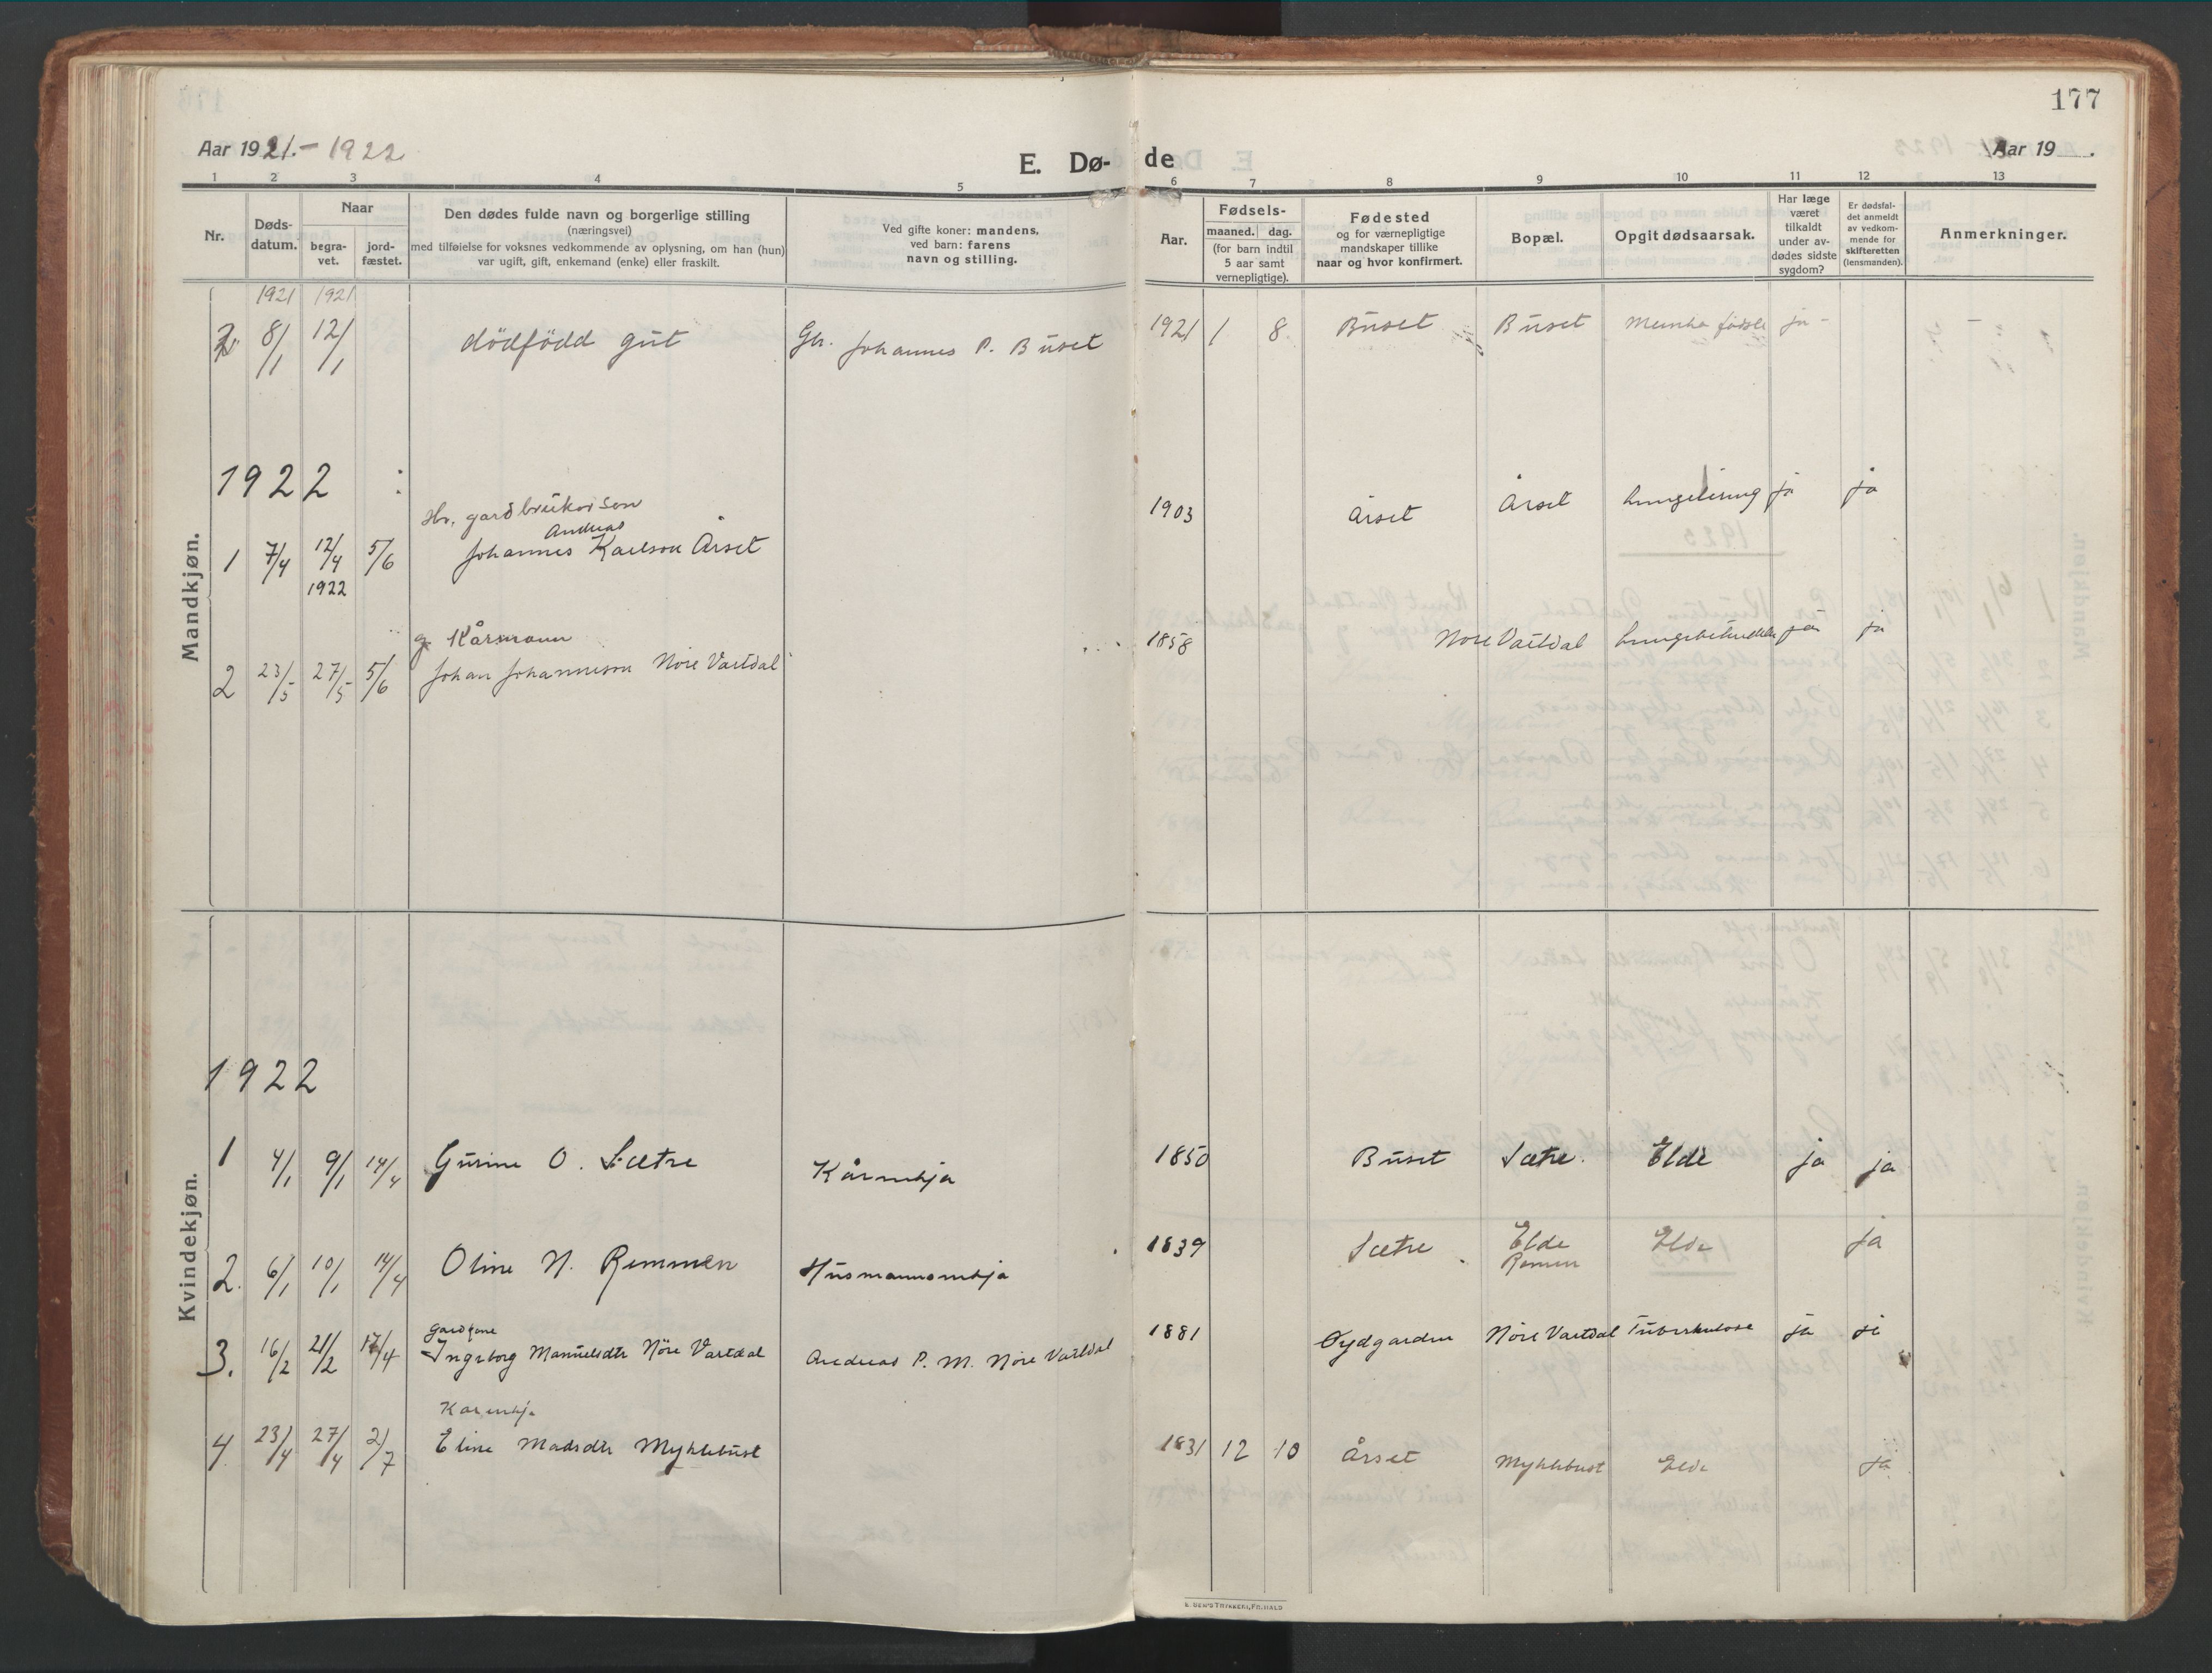 177
Aar 1921.- 1922
E. Dø- de
Aar 19 .
1 2 3 4 5 6 7 8 9 10 11 12 13
Nr.
Døds-
datum.
Naar
begra-
vet.
jord-
fæstet.
Den dødes fulde navn og borgerlige stilling
(næringsvei)
med tilføielse for voksnes vedkommende av oplysning, om han (hun)
var ugift, gift, enkemand (enke) eller fraskilt.
Ved gifte koner: mandens,
ved barn: farens
navn og stilling.
Aar.
Fødsels-
maaned. dag.
(for barn indtil
5 aar samt
vernepligtige).
Fødested
og for værnepligtige
mandskaper tillike
naar og hvor konfirmert.
Bopæl.
Opgit dødsaarsak.
Har læge
været
tilkaldt
under av-
dødes sidste
sygdom?
Er dødsfal-
det anmeldt
av vedkom-
mende for
skifteretten
(lensmanden).
Anmerkninger.
Mandkjøn.
1921 1921
8/1 12/1 dödfödd gut Gbr. Johannes P. Buset 1921 1 8. Buset Buset ja -
1922 :
gardbrukarson
Andreas
1 7/4 12/4 5/6 Johannes Karlson Årset 1903 Årset Årset ja ja
1922
g. Kårmann
2 23/5 27/5 5/6 Johan Johanneson Nore Vartdal 1858 Nore Vartdal ja ja
Kvindekjøn.
1922
1 4/1 9/1 14/4 Gurine O. Sætre Kårenkja 1850 Buset Sætre. Elde ja ja
2. 6/1 10/1 14/4 Oline N. Remmen Husmannsenkja 1839 Sætre Elde Elde ja
Remen
Gardkone
3. 16/2 21/2 17/4 Ingeborg Manuelsdtr Nöre Vartdal Andreas P. M. Nöre Vartdal 1881 Öydgarden Nöre Vartdal Tuberkulose ja ja
Kårenkje
4. 23/4 27/4 2/7 Eline Madsdtr Myklebust 1831 12 10 Årset Myklebust Elde ja
E. SEM'S TRYKKERI, FR.HALD